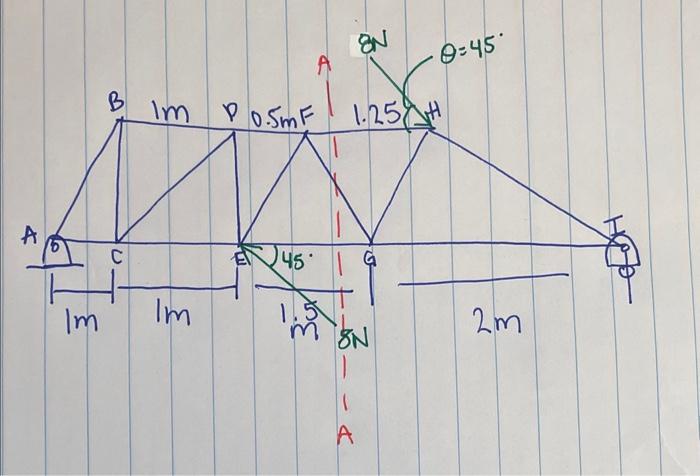 8N
θ=45°
A
B 1m D 0.5m F 1.25 H
A C E 45° G I
1m 1m 1.5 m 2m
8N
A